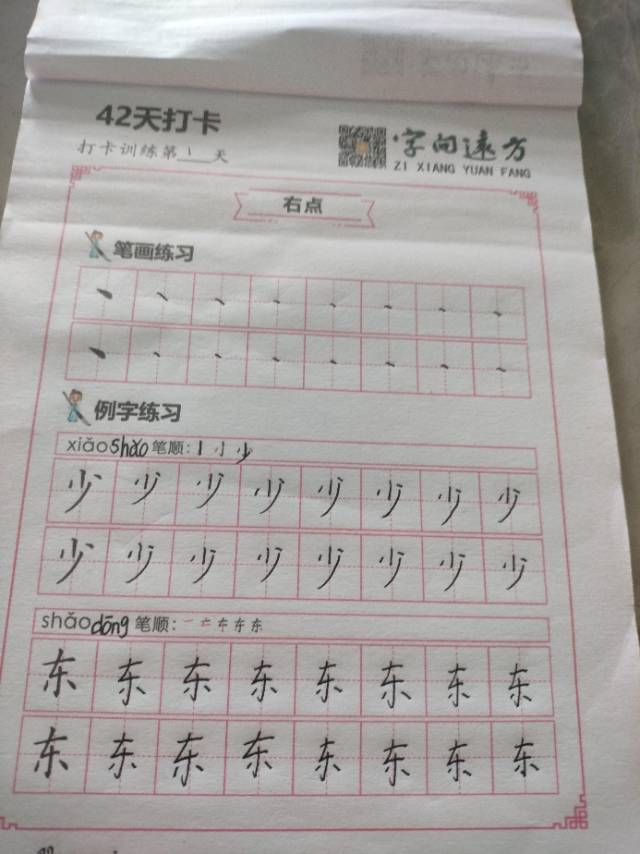 42天打卡
打卡训练第1天
字向远方
ZI XIANG YUAN FANG
右点
笔画练习
丶 丶 丶 丶 丶 丶 丶 丶
丶 丶 丶 丶 丶 丶 丶 丶
例字练习
xiǎo shǎo 笔顺: 丨 小 少
少 少 少 少 少 少 少 少
少 少 少 少 少 少 少 少
shǎo dōng 笔顺:
东 东 东 东 东 东 东 东
东 东 东 东 东 东 东 东